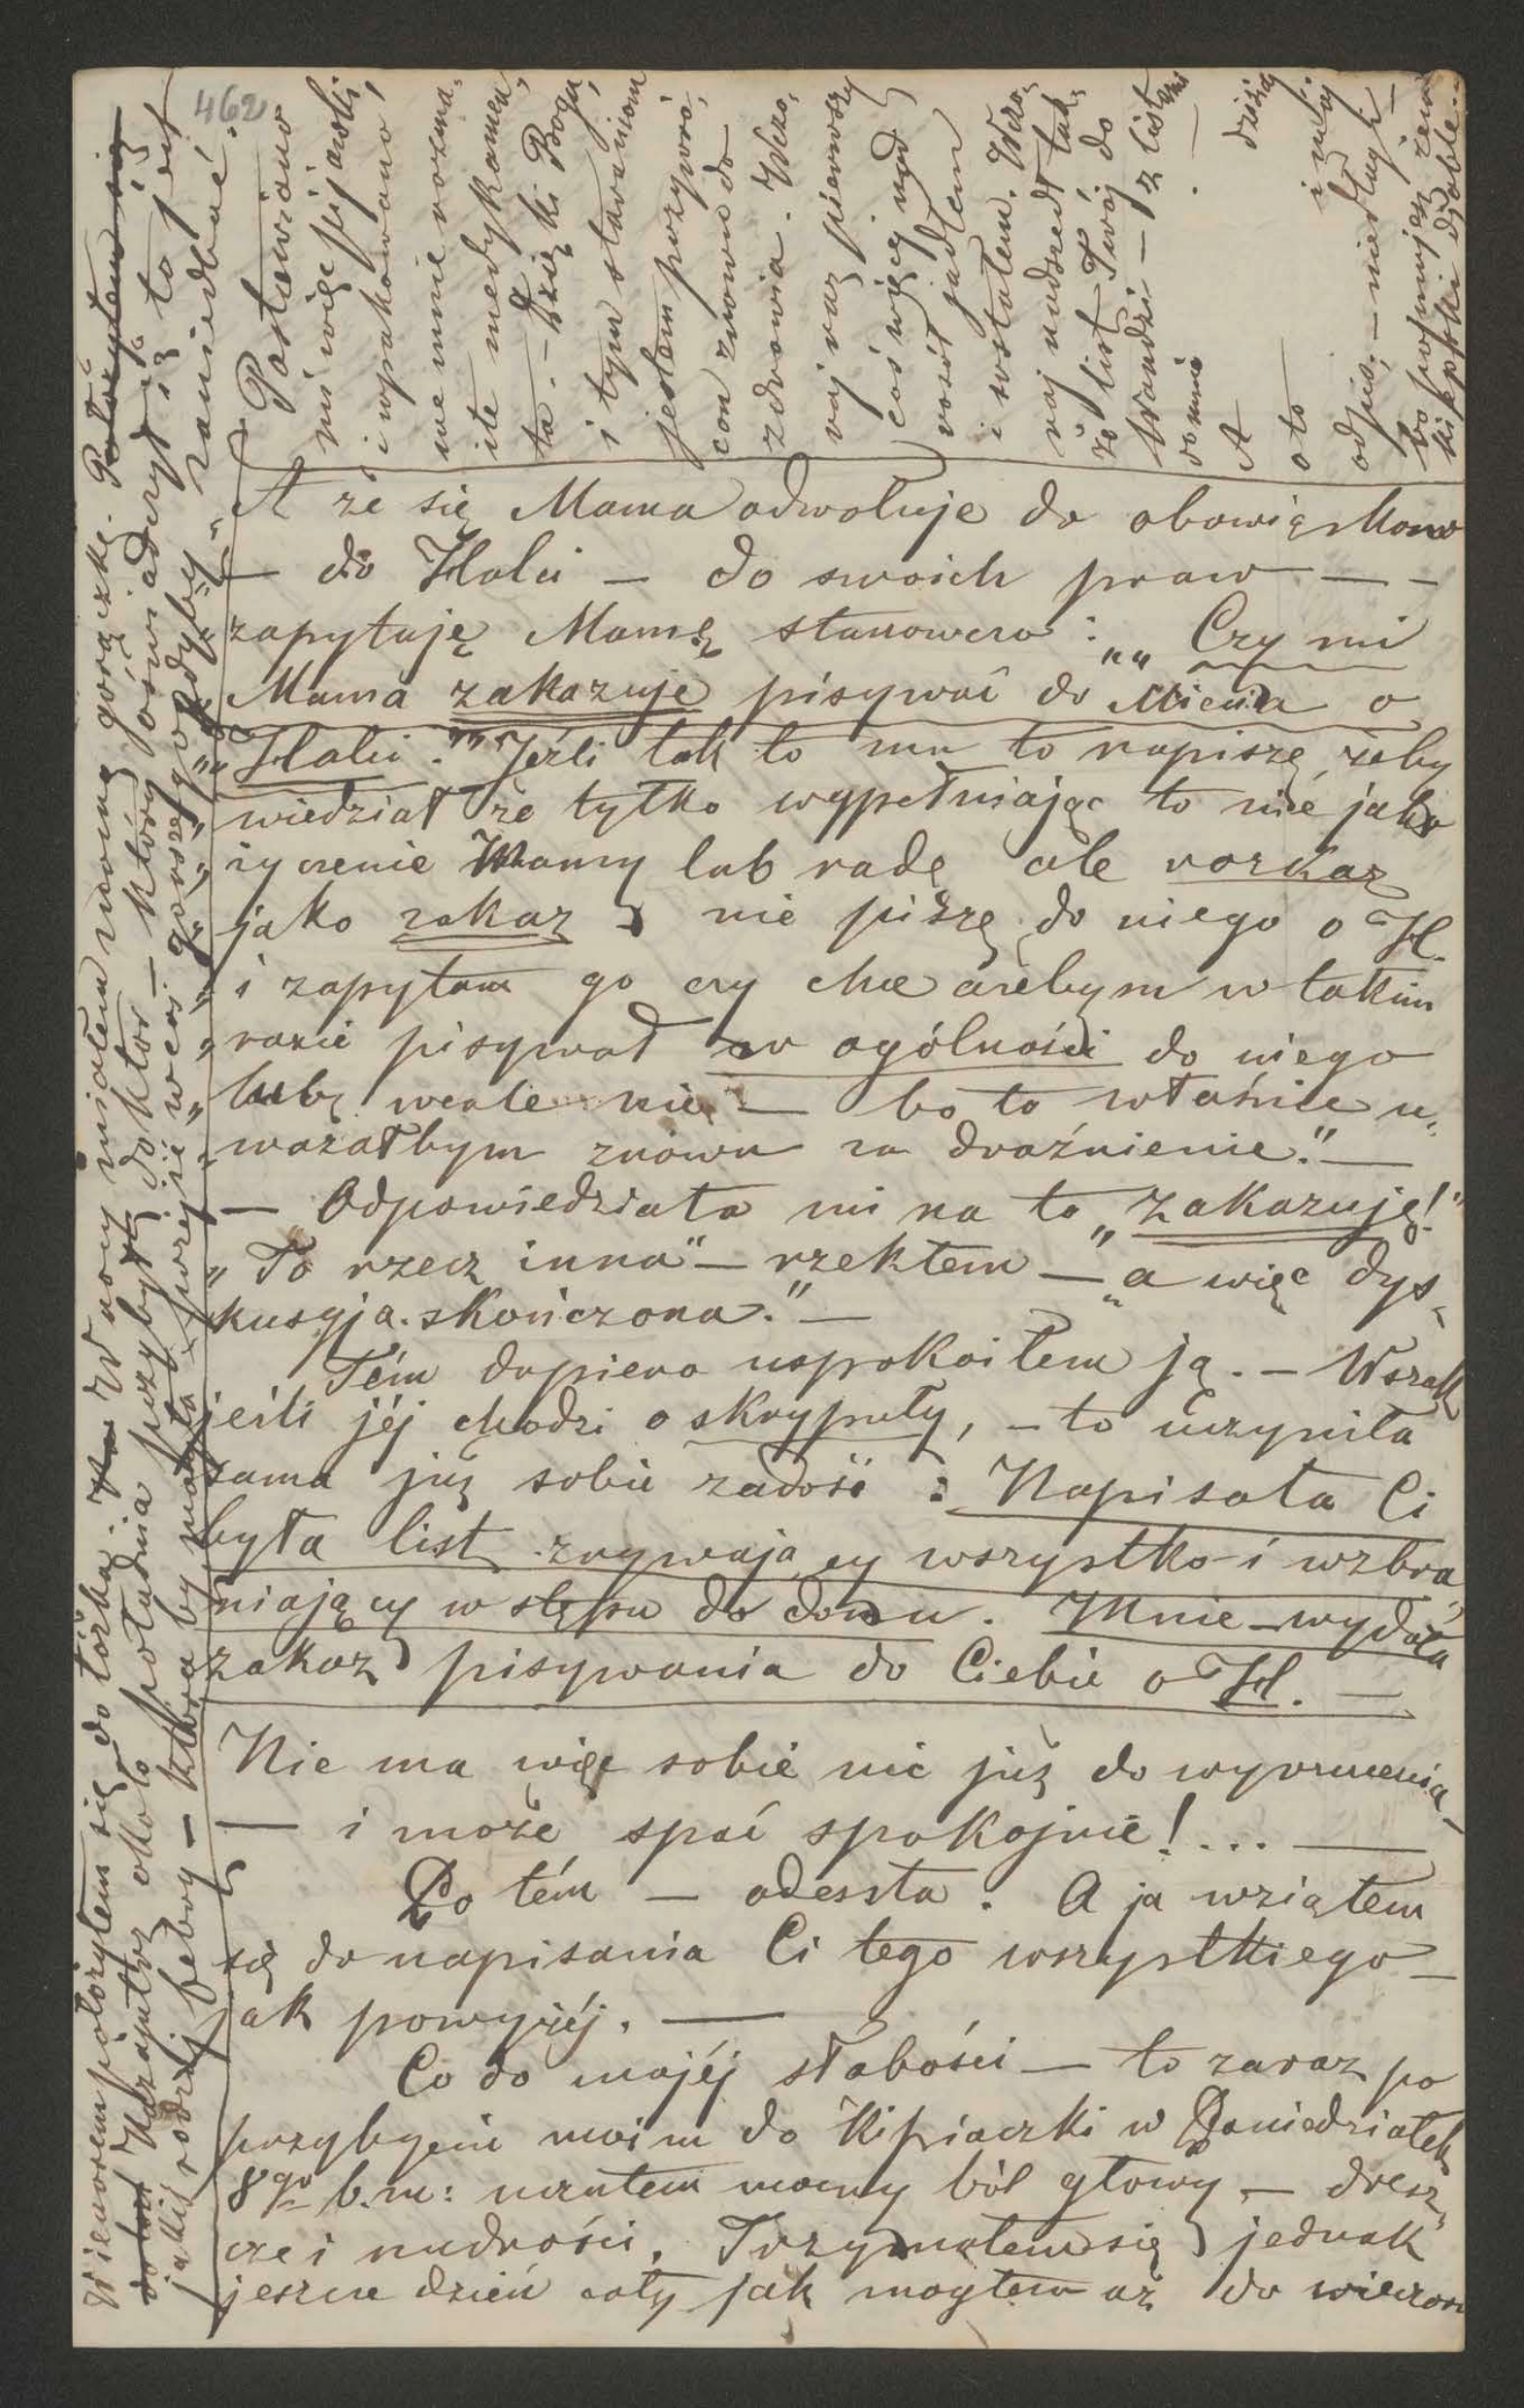 462
A że się Mama odwołuje do obowiązków
— do Halci — do swoich praw — –
zapytuję Mamę stanowczo: „„Czy mi
Mama zakazuje pisywać do Miecia o
Halci."" Jeśli tak to mu to napiszę, żeby
wiedział że tylko wypełniając to nie jako
życzenie Mamy lub radę ale rozkaz
jako zakaz nie piszę do niego o H.
i zapytam go czy chce ażebym w takim
razie pisywał w ogólności do niego
lub wcale nie — bo to właśnie u,
ważałbym znowu za drażnienie." —
— Odpowiedziała mi na to „Zakazuję!"
„To rzecz inna" — rzekłem — „a więc dys,
kusyja skończona." —
Tém dopiero uspokoiłem ją. — Wszak
jeśli jéj chodzi o skrypuły, — to uczyniła
sama już sobie zadość: Napisała Ci
była list zrywający wszystko i wzbra,
niający wstępu do domu. Mnie — wydała
zakaz pisywania do Ciebie o H. —
Nie ma więc sobie nic już do wyrzucenia,
— i może spać spokojnie!... —
Po tém — odeszła. A ja wziąłem
się do napisania Ci tego wszystkiego —
jak powyżéj. —
Co do mojéj słabości — to zaraz po
przybyciu moim do Kipiaczki w Poniedziałek
8go b.m: uczułem mocny ból głowy, — dresz,
cze i nudności. Trzymałem się jednak
jeszcze dzień cały jak mogłem aż do wieczora
Wieczorem położyłem się do łóżka. W nocy miałem mocną gorączkę.
Nazajutrz około południa przybył doktor — który oświadczył iż to jest
jakiś rodzaj febry — która by mogła przejść w coś gorszego gdyby
zaniedbać.
Postawiono
mi więc pijawki
i upakowano
we mnie rozma,
ite medykamen,
ta. — Dzięki Bogu,
i tym staraniom
jestem przypro,
con znowu do
zdrowia. Wczo,
raj raz pierwszy
coś więcéj nad
rosół jadłem
i wstałem. Wczo,
raj nadszedł tak,
że list Twój do
Wandzi — z list
do mnie. —
A dzisiaj
oto i mój
odpis, — nie długi —